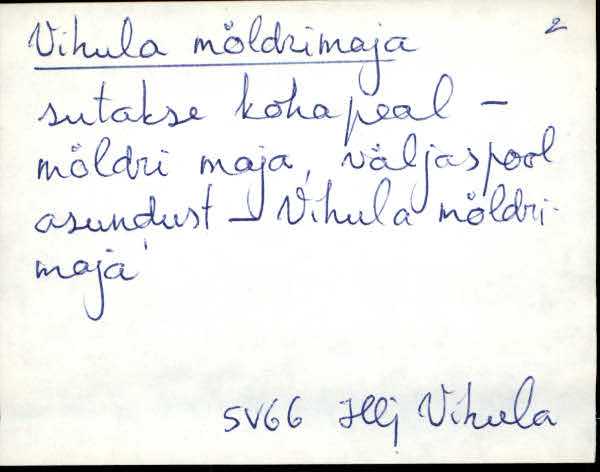 2
Vihula möldrimaja
sutakse kohapeal –
möldri maja, väljaspool
asundust – Vihula möldri-
maja
SV66 Hlj Vihula